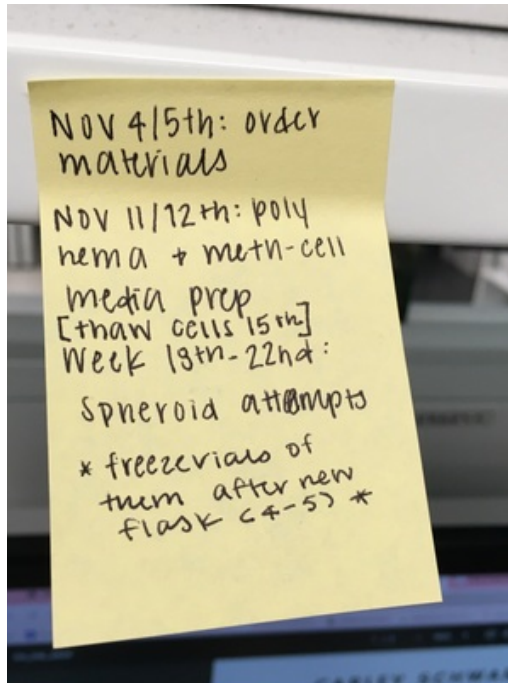 Nov 4/5th: order
materials
Nov 11/12th: poly
hema + meth-cell
media prep
[thaw cells 15th]
Week 18th-22nd:
Spheroid attempts
* freeze vials of
them after new
flask (4-5) *